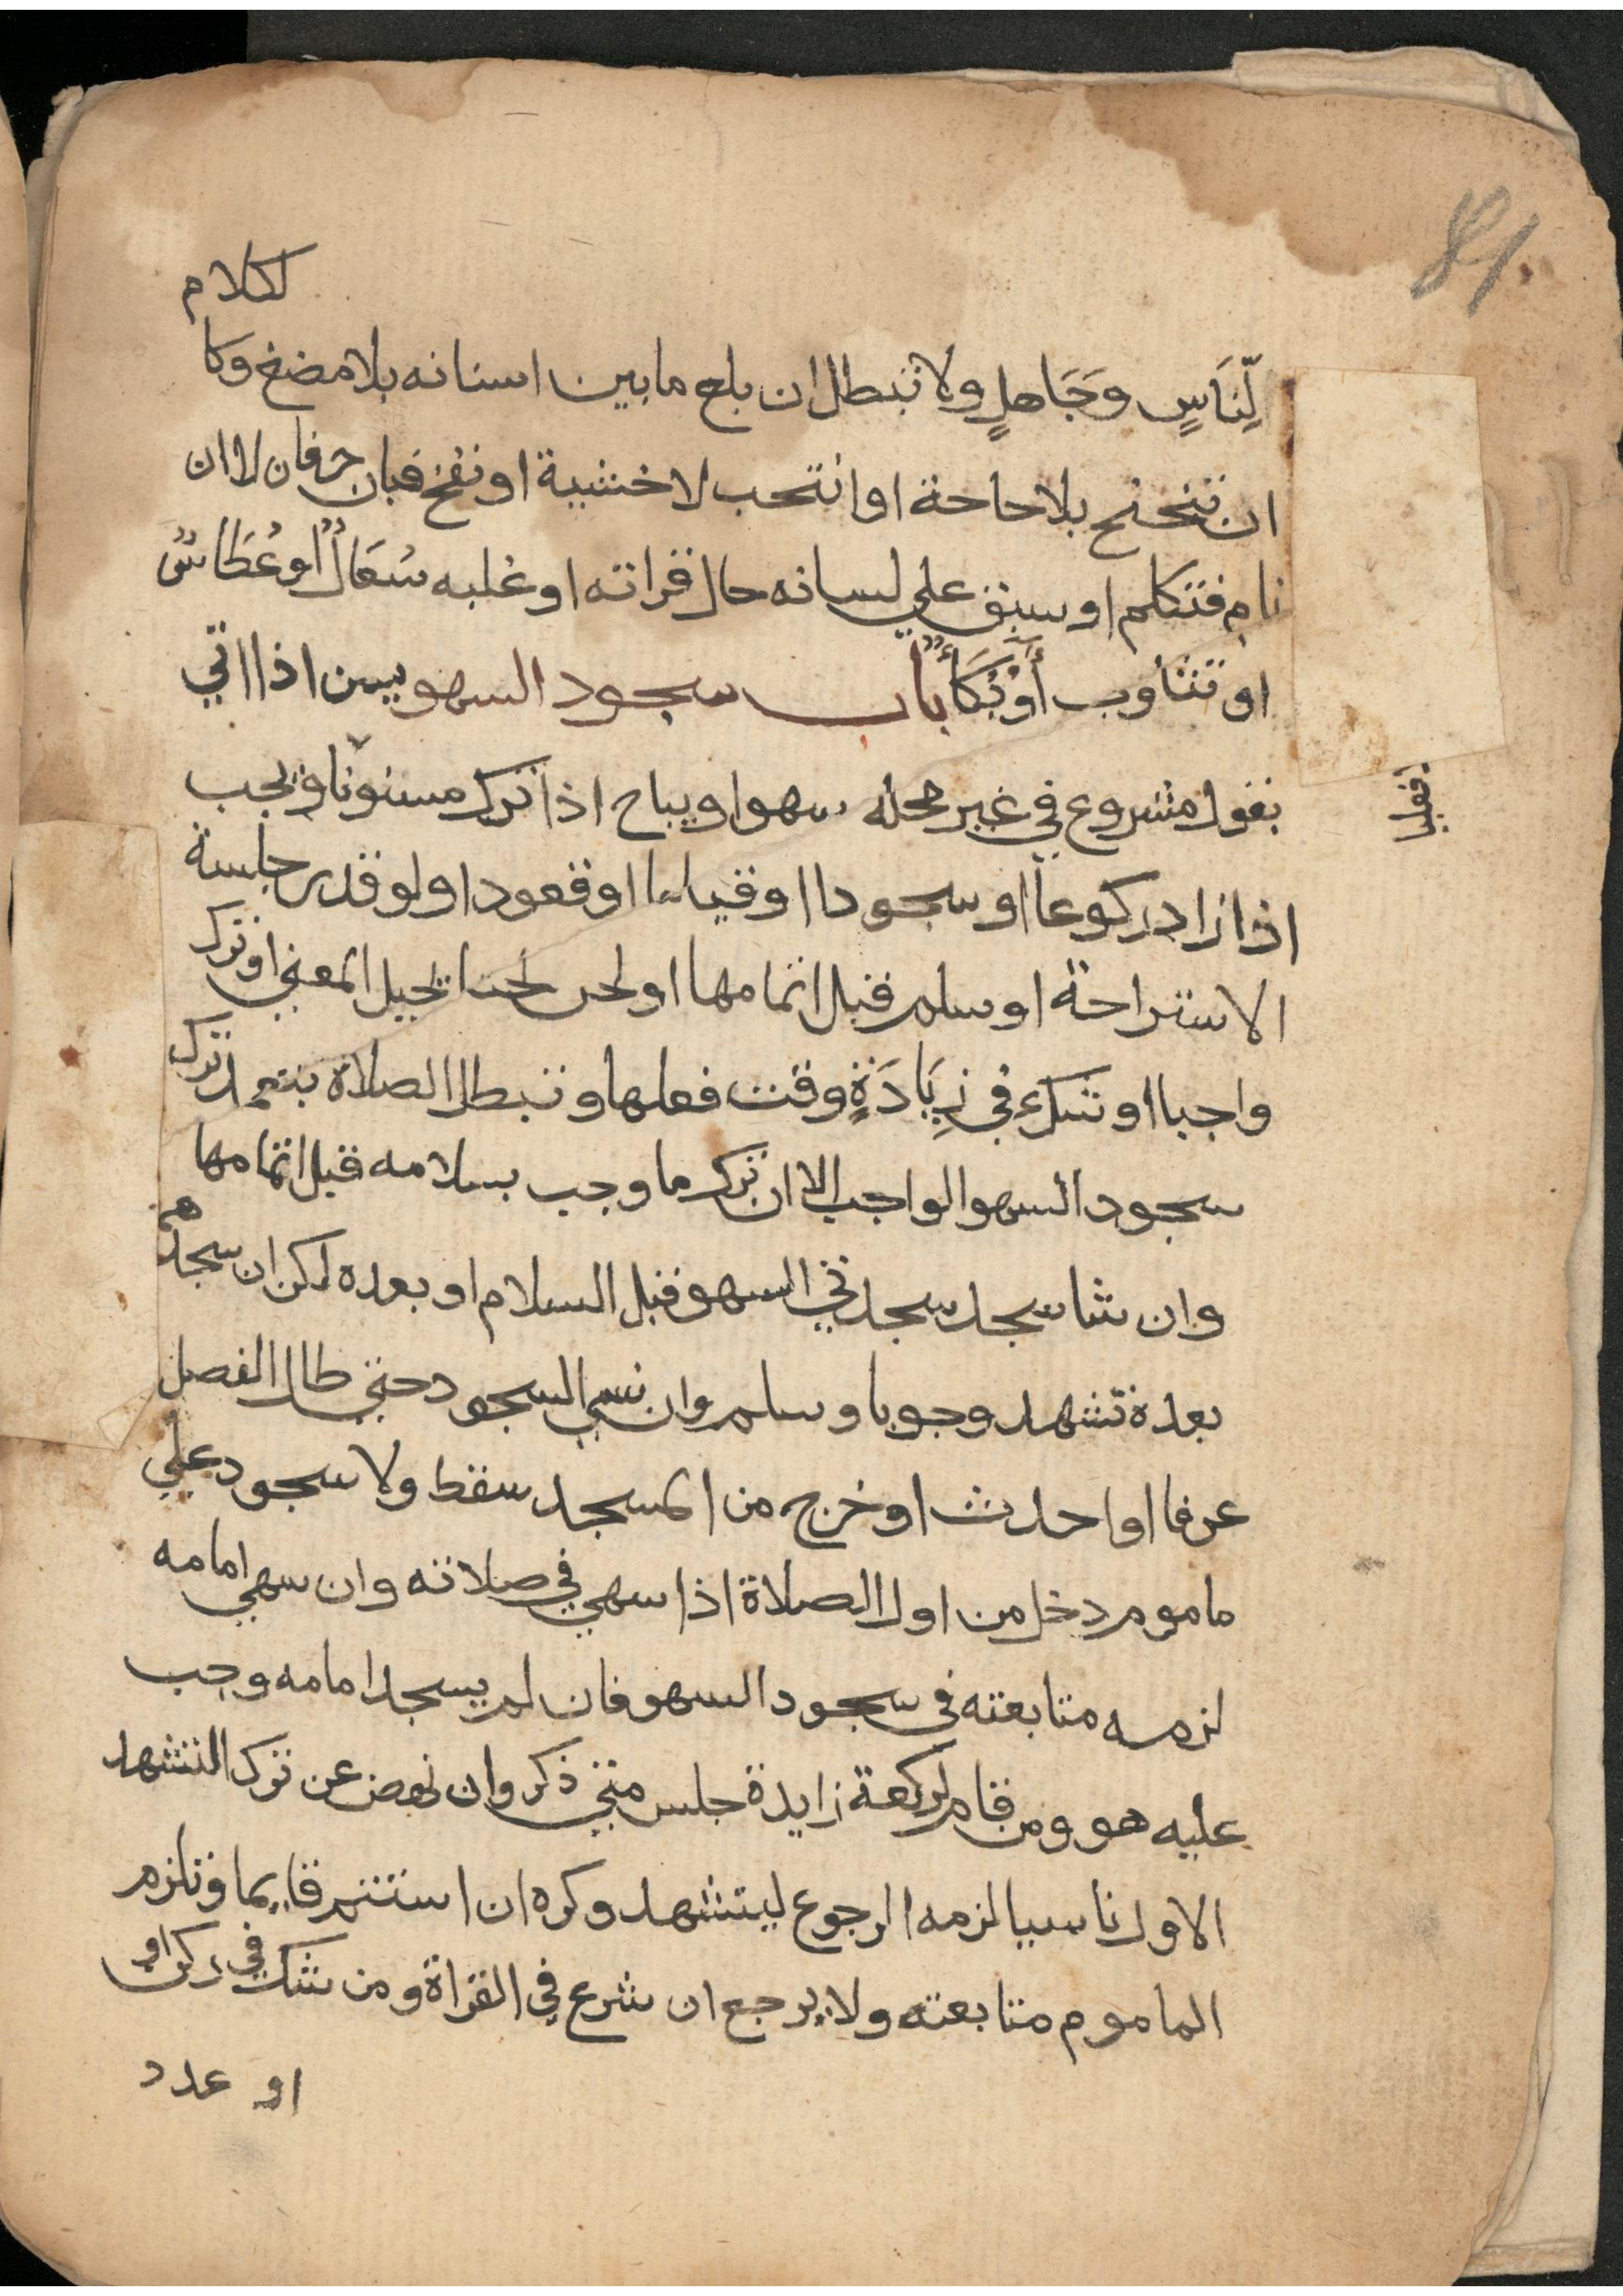 لكلام
لِّنَاسٍ وَجَاهلٍ ولا تبطل ان بلع ما بين اسنانه بلا مضغ وكا
ان تنحنح بلا حاجة او انتحب لا خشية او نفخ فبان حرفان لا ان
نام فتكلم او سبق علي لسانه حال قراته او غلبه سُعَالٌ او عُطَاسٌ
او تثاوب أوْبُكَأٌ باب سجود السهو يسن اذا اتي
بقول مشروع في غير محله سهوا ويباح اذا ترك مسنونا ويجب
اذا زاد ركوعا او سجودا او قياما او قعودا ولو قدر جلسة
الاستراحة او سلم قبل اتمامها او لحن لحنا يحيل المعني او ترك
واجبا او شك في زِيَادَةٍ وقت فعلها وتبطل الصلاة بتعمد ترك
سجود السهو الواجب الا ان ترك ما وجب بسلامه قبل اتمامها
وان شا سجد سجدتي السهو قبل السلام او بعده لكن ان سجدهم
بعده تشهد وجوبا وسلم وان نسي السجود حتي طال الفصل
عرفا او احدث او خرج من المسجد سقط ولا سجود علي
ماموم دخل من اول الصلاة اذا سهي في صلاته وان سهي امامه
لزمه متابعته في سجود السهو فان لم يسجد امامه وجب
عليه هو ومن قام لركعة زايدة جلس متي ذكر وان نهض عن ترك التشهد
الاول ناسيا لزمه الرجوع ليتشهد وكره ان استتم قايما وتلزم
الماموم متابعته ولا يرجع ان شرع في القراة ومن شك في ركن او
او عدد